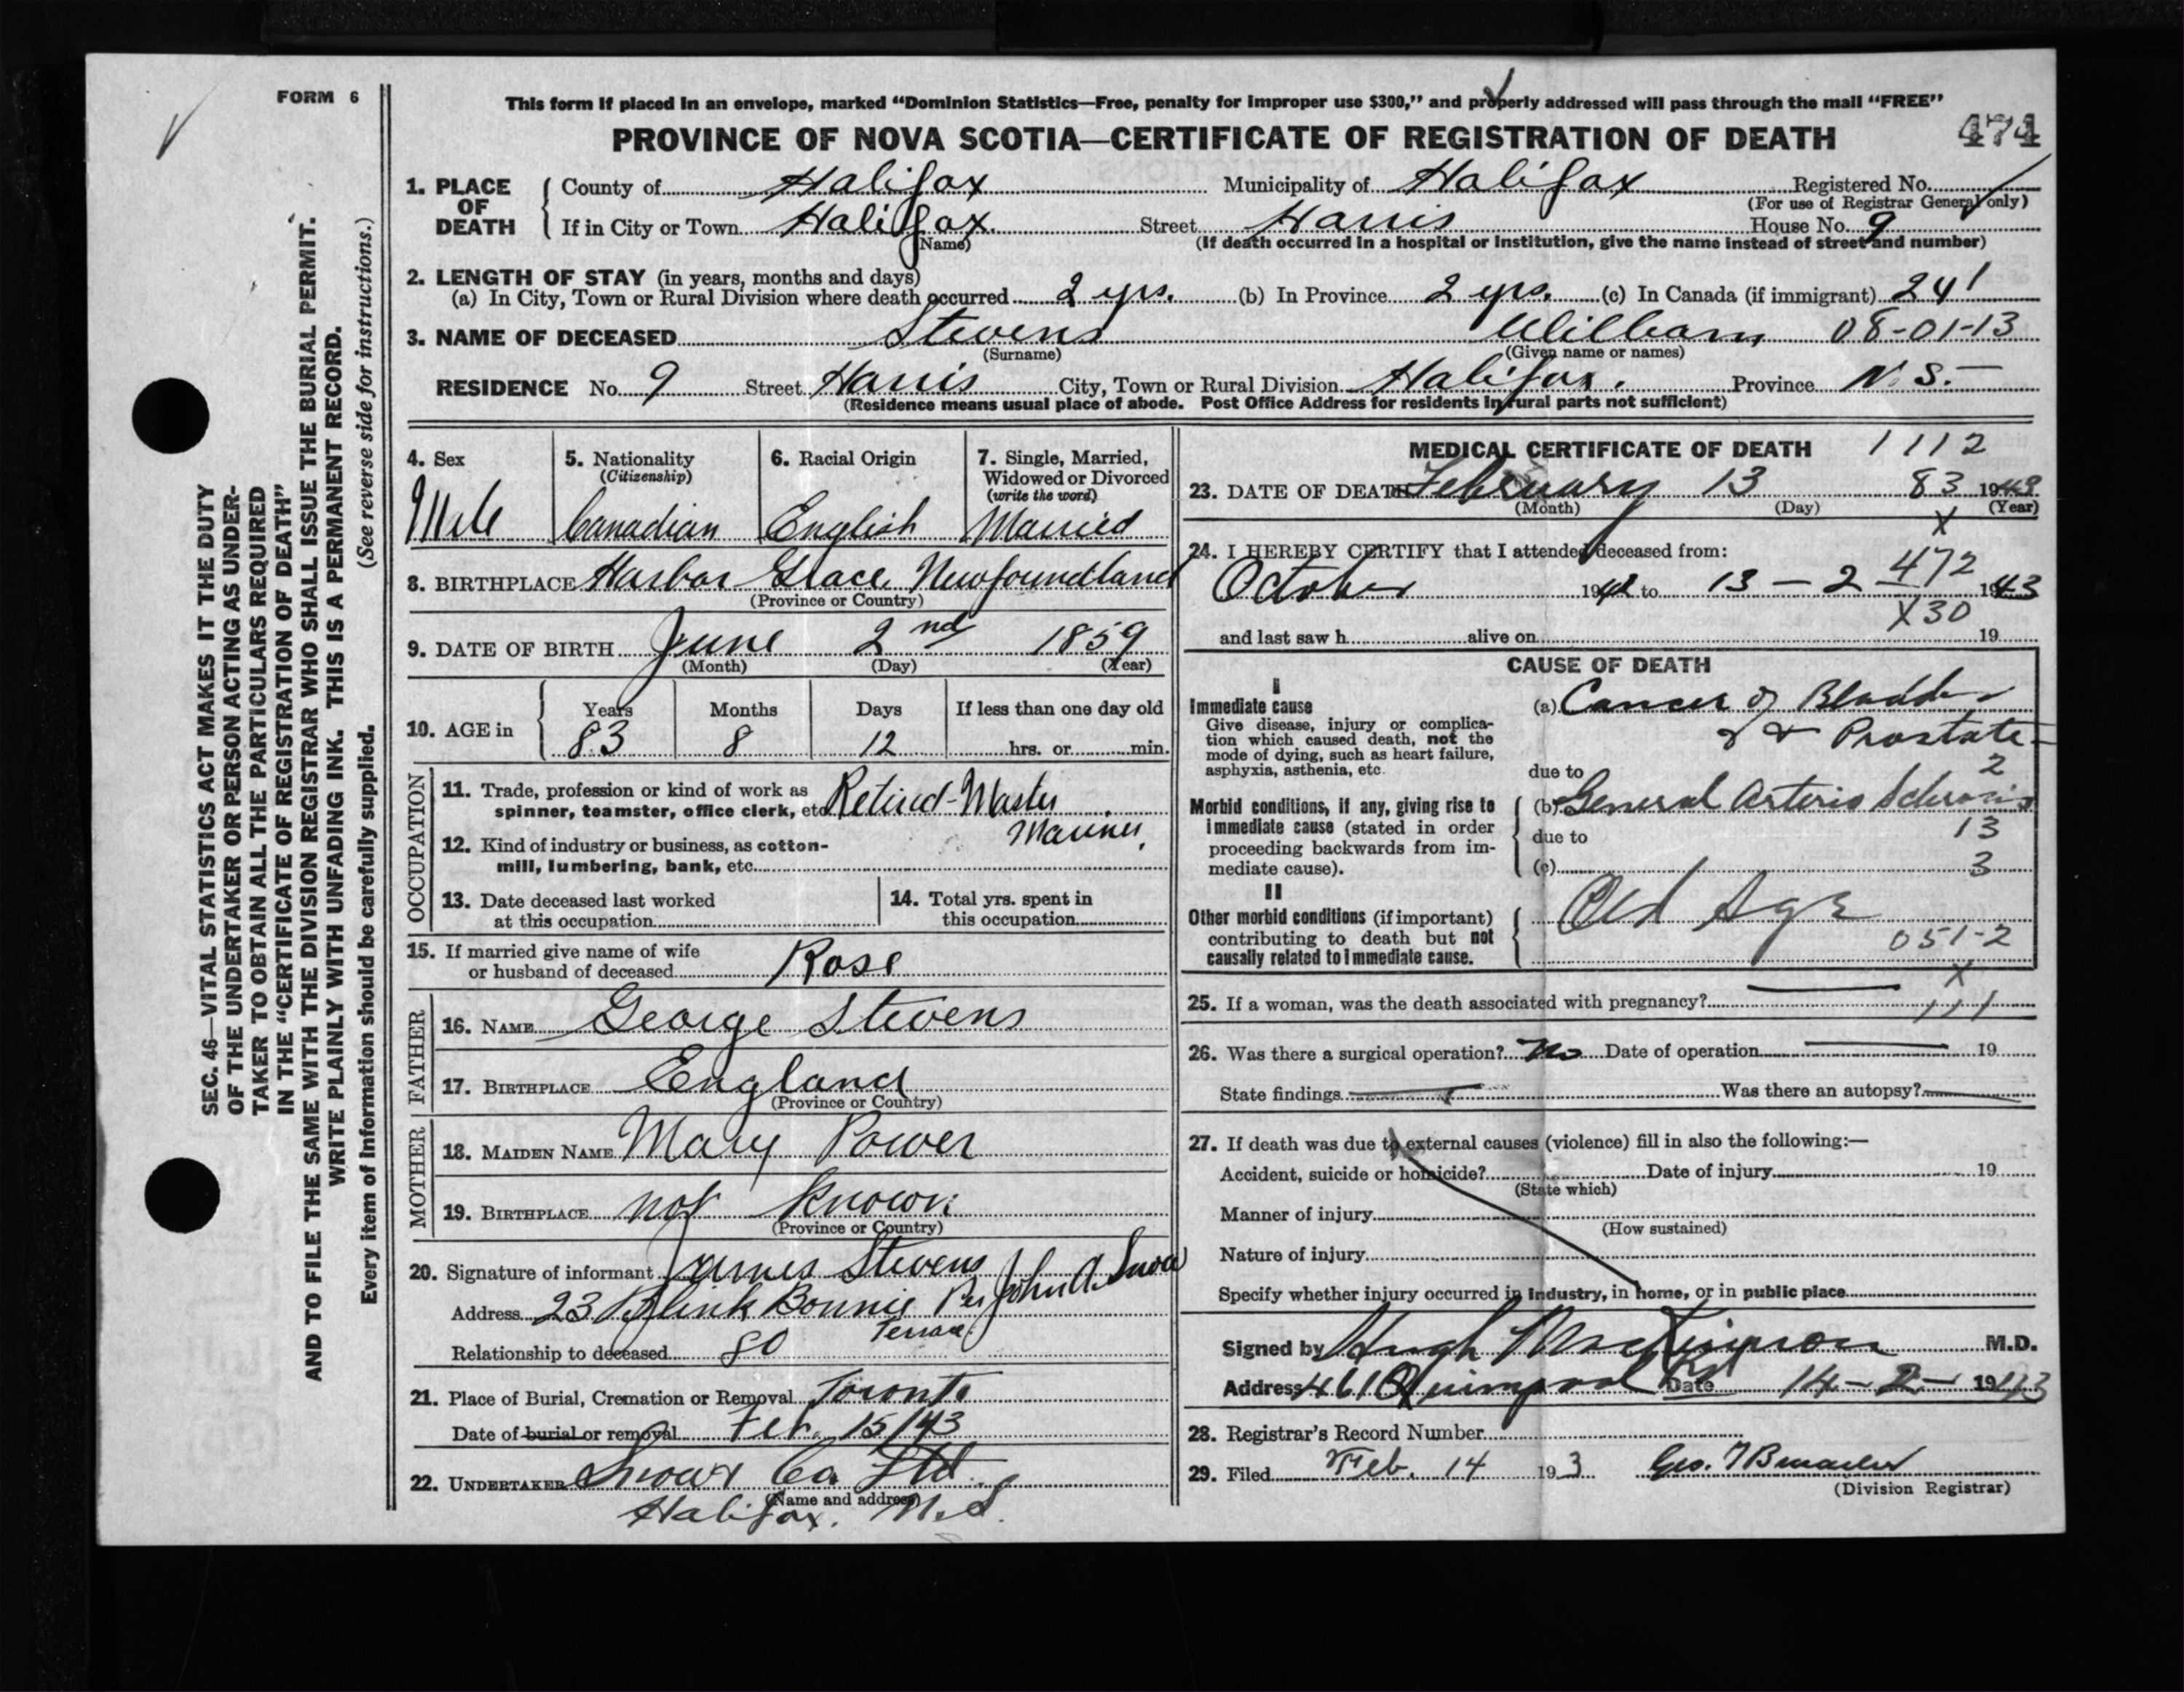 FORM 6
This form if placed in an envelope, marked “Dominion Statistics—Free, penalty for improper use $300,” and properly addressed will pass through the mail “FREE”
PROVINCE OF NOVA SCOTIA—CERTIFICATE OF REGISTRATION OF DEATH 474
1. PLACE OF DEATH County of Halifax Municipality of Halifax Registered No.
(For use of Registrar General only)
If in City or Town Halifax Street Harris House No. 9
(Name) (If death occurred in a hospital or institution, give the name instead of street and number)
2. LENGTH OF STAY (in years, months and days)
(a) In City, Town or Rural Division where death occurred 2 yrs. (b) In Province 2 yrs. (c) In Canada (if immigrant) 241
3. NAME OF DECEASED Stevens William 08-01-13
(Surname) (Given name or names)
RESIDENCE No. 9 Street Harris City, Town or Rural Division Halifax. Province N.S.
(Residence means usual place of abode. Post Office Address for residents in rural parts not sufficient)
SEC. 46—VITAL STATISTICS ACT MAKES IT THE DUTY
OF THE UNDERTAKER OR PERSON ACTING AS UNDER-
TAKER TO OBTAIN ALL THE PARTICULARS REQUIRED
IN THE “CERTIFICATE OF REGISTRATION OF DEATH”
AND TO FILE THE SAME WITH THE DIVISION REGISTRAR WHO SHALL ISSUE THE BURIAL PERMIT.
WRITE PLAINLY WITH UNFADING INK. THIS IS A PERMANENT RECORD.
Every item of information should be carefully supplied. (See reverse side for instructions.)
4. Sex 5. Nationality 6. Racial Origin 7. Single, Married,
(Citizenship) Widowed or Divorced
(write the word)
Male Canadian English Married
8. BIRTHPLACE Harbor Grace Newfoundland
(Province or Country)
9. DATE OF BIRTH June 2nd 1859
(Month) (Day) (Year)
10. AGE in Years Months Days If less than one day old
83 8 12 hrs. or min.
OCCUPATION
11. Trade, profession or kind of work as
spinner, teamster, office clerk, etc. Retired-Master
Mariner.
12. Kind of industry or business, as cotton-
mill, lumbering, bank, etc.
13. Date deceased last worked
at this occupation
14. Total yrs. spent in
this occupation
15. If married give name of wife
or husband of deceased Rose
FATHER
16. NAME George Stevens
17. BIRTHPLACE England
(Province or Country)
MOTHER
18. MAIDEN NAME Mary Power
19. BIRTHPLACE not known
(Province or Country)
20. Signature of informant James Stevens
Per John A Snow
Address 23 Blink Bonnie
Terrace
Relationship to deceased
21. Place of Burial, Cremation or Removal Toronto
Date of burial or removal Feb. 15/43
22. UNDERTAKER Snow & Co Ltd.
(Name and address)
Halifax. N.S.
MEDICAL CERTIFICATE OF DEATH 1112
23. DATE OF DEATH February 13 83 1943
(Month) (Day) (Year)
X
24. I HEREBY CERTIFY that I attended deceased from:
472
October 1942 to 13 - 2 1943
X30
and last saw h alive on 19
CAUSE OF DEATH
I
Immediate cause
Give disease, injury or complica-
tion which caused death, not the
mode of dying, such as heart failure,
asphyxia, asthenia, etc.
(a) Cancer of Bladder
& Prostate
due to 2
Morbid conditions, if any, giving rise to
immediate cause (stated in order
proceeding backwards from im-
mediate cause).
(b) General Arterio Sclerosis
due to 13
(c) 3
II
Other morbid conditions (if important)
contributing to death but not
causally related to immediate cause.
Old Age
051-2
X
25. If a woman, was the death associated with pregnancy? 111
26. Was there a surgical operation? No Date of operation 19
State findings Was there an autopsy?
27. If death was due to external causes (violence) fill in also the following:—
Accident, suicide or homicide? Date of injury 19
(State which)
Manner of injury
(How sustained)
Nature of injury
Specify whether injury occurred in industry, in home, or in public place
Signed by Hugh MacKinnon M.D.
Address 461 Quinpool Rd Date 14-2-1943
28. Registrar's Record Number
29. Filed Feb. 14 193 Geo.
(Division Registrar)